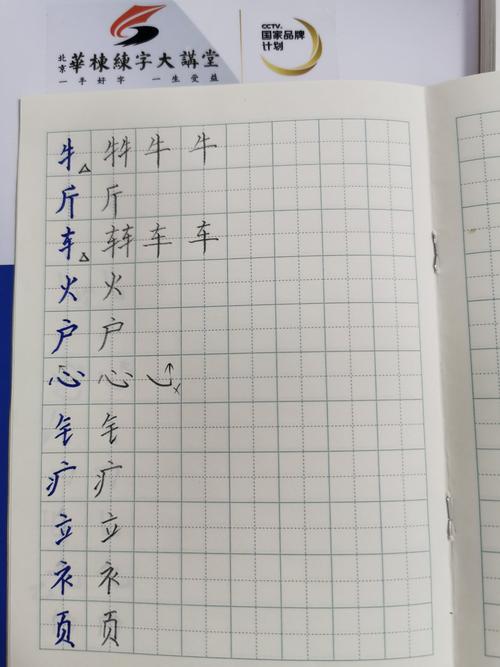 北京 華棟練字大講堂
一手好字 一生受益
CCTV.
国家品牌
计划
牛 牛牛 牛 牛
斤 斤
车 车车 车 车
火 火
户 户
心 心
钅 钅
疒 疒
立 立
衤 衤
页 页